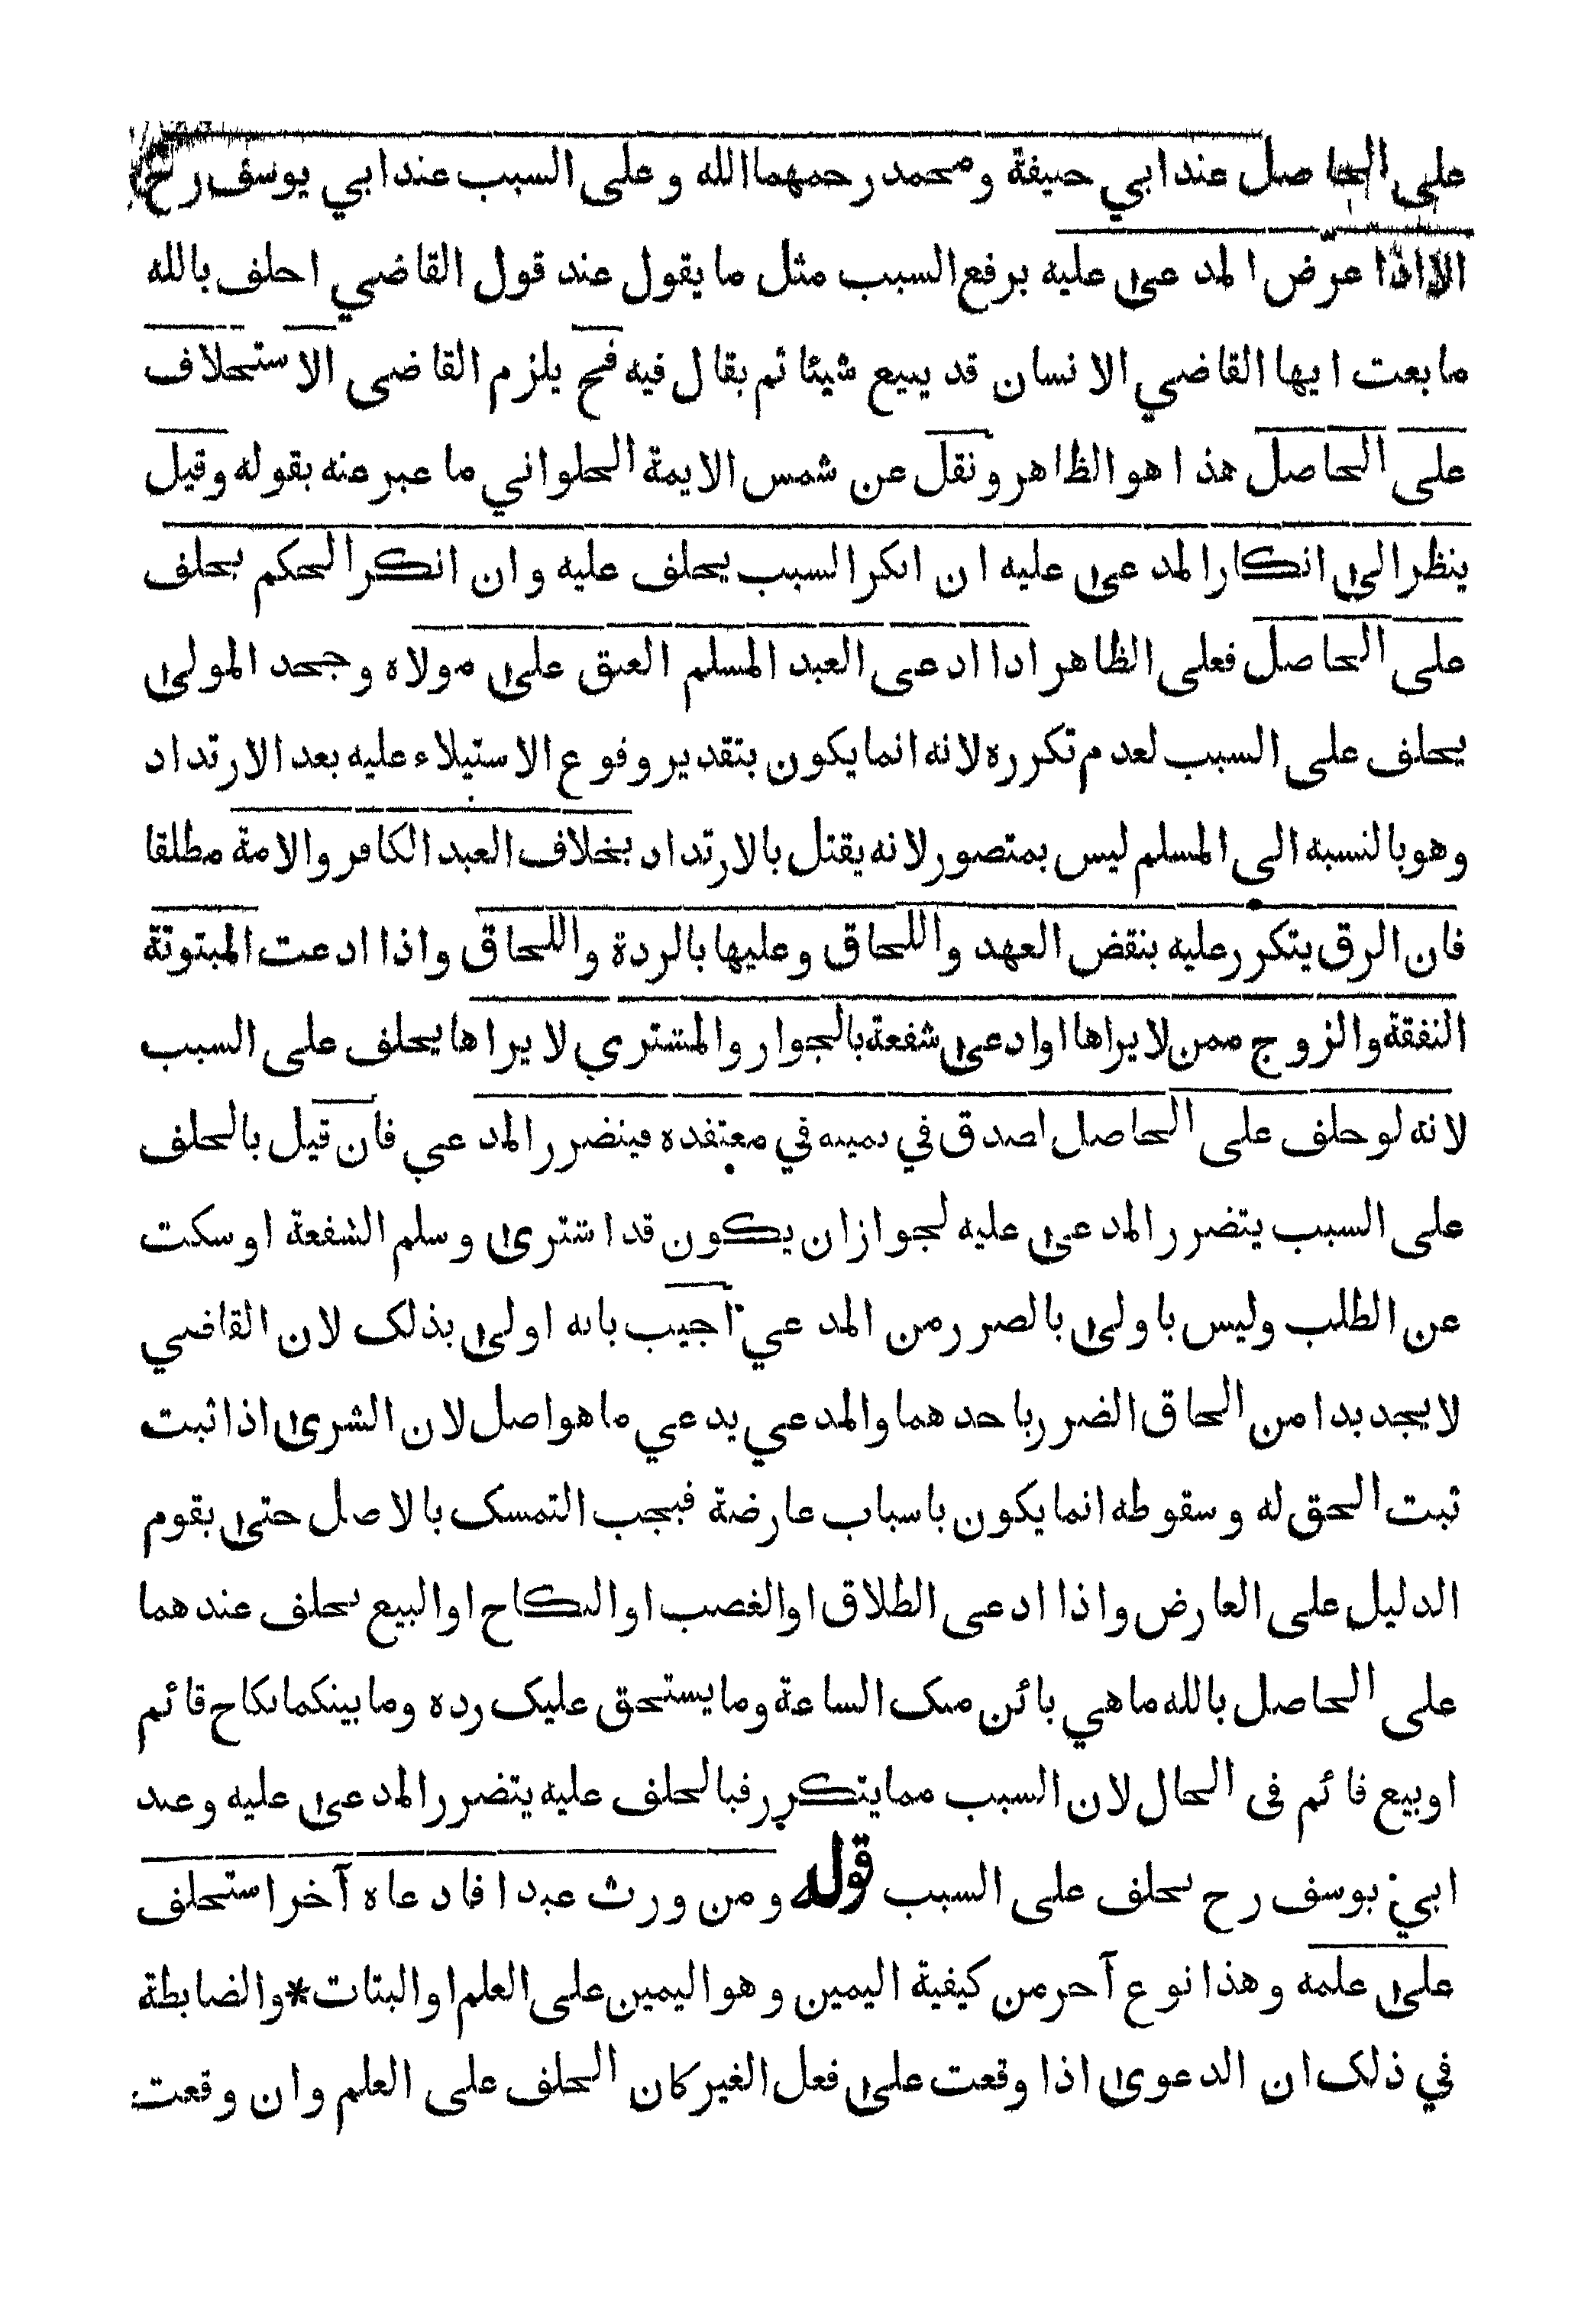 على الحاصل عند ابي حنيفة و محمد رحمهما الله و على السبب عند ابي يوسف رح
الا اذا عرض المدعى عليه برفع السبب مثل ما يقول عند قول القاضي احلف بالله
ما بعت ايها القاضي الانسان قد يبيع شيئا ثم يقال فيه فح يلزم القاضى الاستحلاف
على الحاصل هذا هو الظاهر و نقل عن شمس الايمة الحلواني ما عبر عنه بقوله و قيل
ينظر الى انكار المدعى عليه ان انكر السبب يحلف عليه و ان انكر الحكم يحلف
على الحاصل فعلى الظاهر اذا ادعى العبد المسلم العتق على مولاه و جحد المولى
يحلف على السبب لعدم تكرره لانه انما يكون بتقدير وقوع الاستيلاء عليه بعد الارتداد
و هو بالنسبه الى المسلم ليس بمتصور لانه يقتل بالارتداد بخلاف العبد الكافر و الامة مطلقا
فان الرق يتكرر عليه بنقض العهد و اللحاق و عليها بالردة و اللحاق و اذا ادعت المبتوتة
النفقة و الزوج ممن لا يراها او ادعى شفعة بالجوار و المشتري لا يراها يحلف على السبب
لانه لو حلف على الحاصل اصدق في يمينه في معتقده فيتضرر المدعي فان قيل بالحلف
على السبب يتضرر المدعى عليه لجواز ان يكون قد اشترى و سلم الشفعة او سكت
عن الطلب و ليس باولى بالضرر من المدعي اجيب بانه اولى بذلک لان القاضي
لا يجد بدا من الحاق الضرر باحدهما و المدعي يدعي ما هو اصل لان الشرى اذا ثبت
ثبت الحق له و سقوطه انما يكون باسباب عارضة فيجب التمسک بالاصل حتى يقوم
الدليل على العارض و اذا ادعى الطلاق او الغصب او النكاح او البيع يحلف عندهما
على الحاصل بالله ما هي بائن منک الساعة و ما يستحق عليک رده و ما بينكما نكاح قائم
او بيع قائم فى الحال لان السبب مما يتكرر فبالحلف عليه يتضرر المدعى عليه و عند
ابي يوسف رح يحلف على السبب قوله و من ورث عبدا فادعاه آخر استحلف
على علمه و هذا نوع آخر من كيفية اليمين و هو اليمين على العلم او البتات * و الضابطة
في ذلک ان الدعوى اذا وقعت على فعل الغير كان الحلف على العلم و ان وقعت